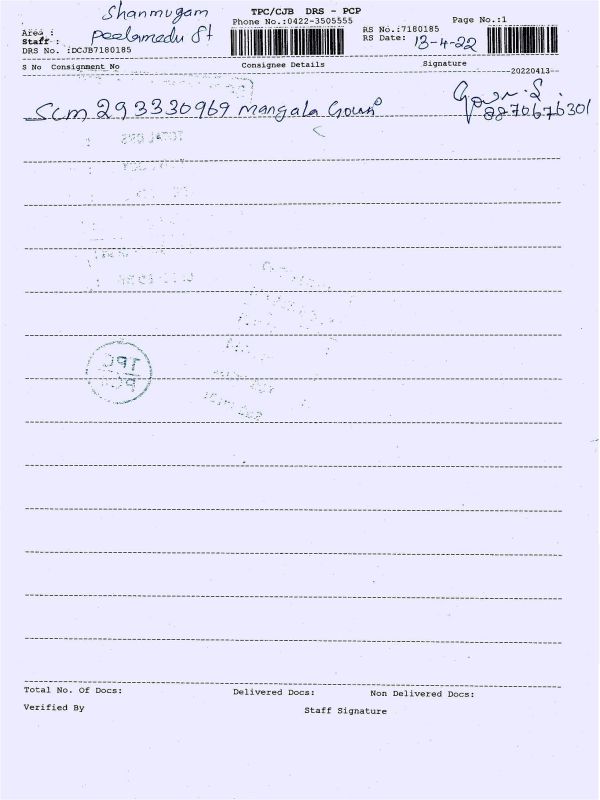 Shanmugam TPC/CJB DRS - PCP Page No.:1
Phone No.:0422-3505555
Area : Peelamedu St RS No.:7180185
Staff : RS Date: 13-4-22
DRS No. :DCJB7180185
S No Consignment No Consignee Details Signature
20220413
Scm 293330969 Mangala Gowri Gowri.S.
8870676301
TPC
Total No. Of Docs: Delivered Docs: Non Delivered Docs:
Verified By Staff Signature